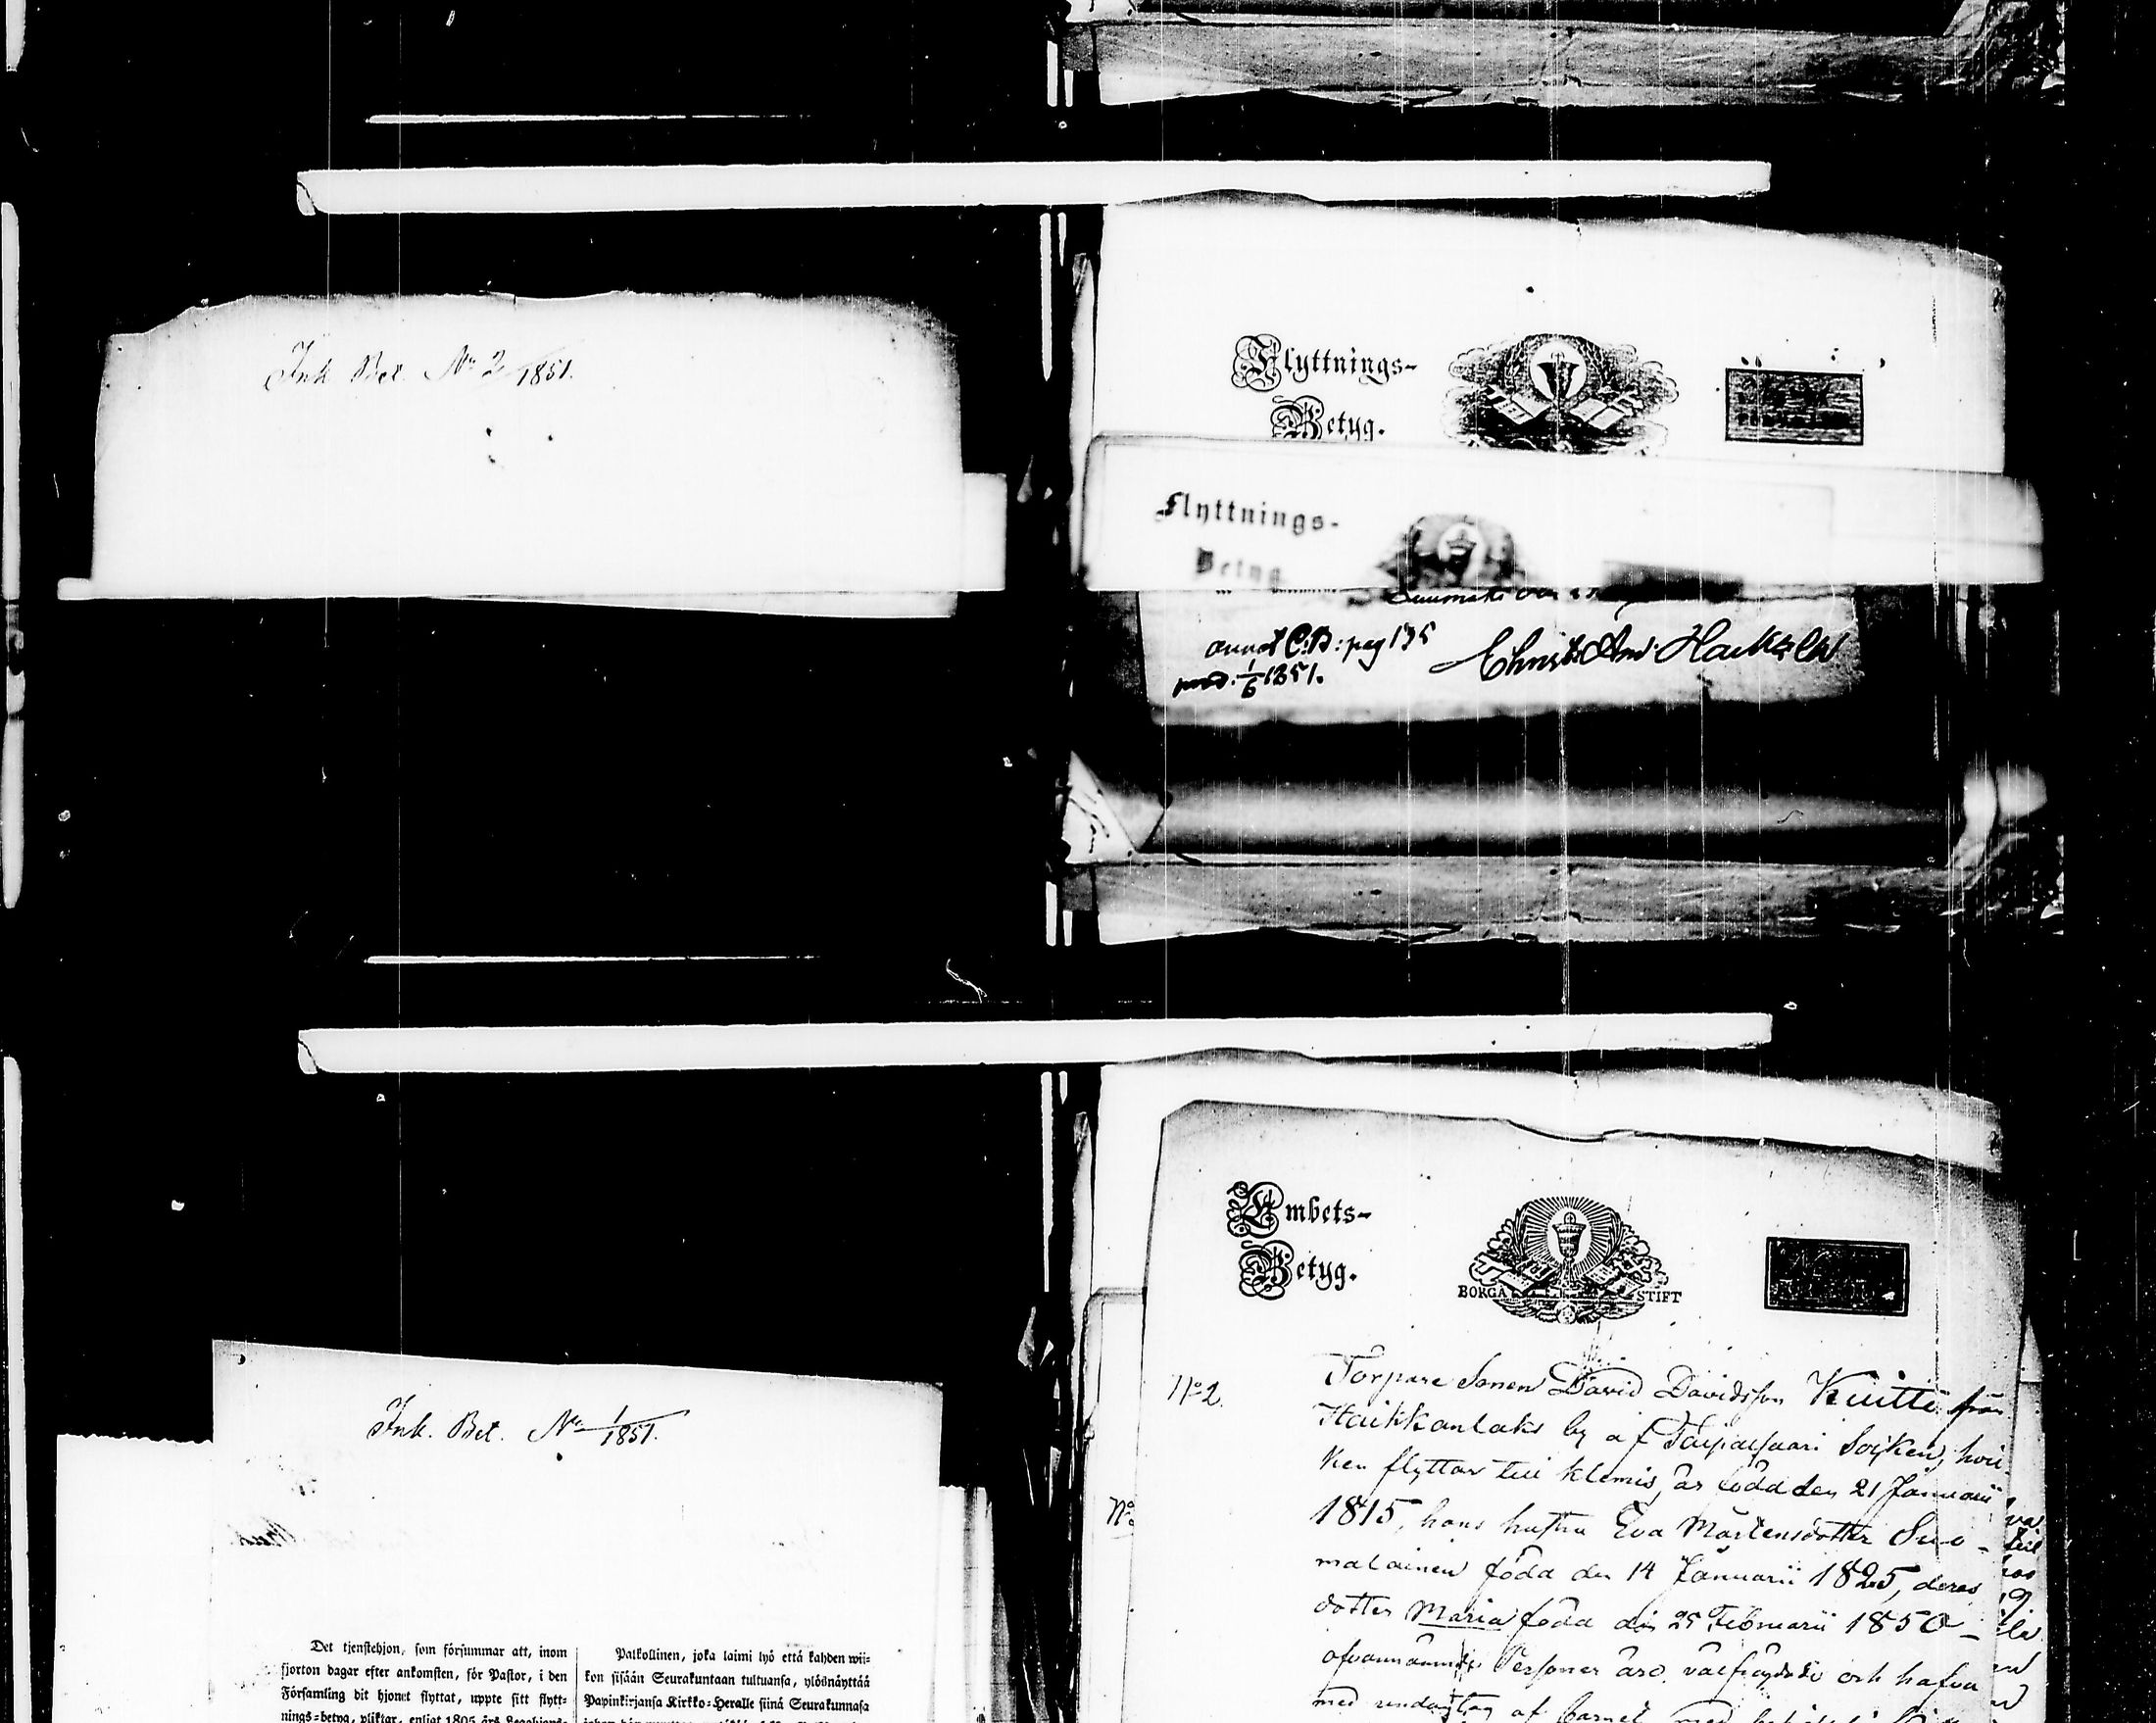 Ink. Bet. No 2/1851.
Flyttnings-
Betyg.
Flyttnings-
Betyg
annot C.B: pag 135
1/6 1851.
Ink. Bet. No 1/1851.
Det tjenstehjon, som försummar att, inom
fjorton dagar efter ankomsten, för Pastor, i den
Församling dit hjonet flyttat, uppte sitt flytt-
nings-betyg, pliktar, enligt 1805 års
Palkollinen, joka laimi lyö että kahden wii-
kon sisään Seurakuntaan tultuansa, ylösnäyttää
Papinkirjansa Kirkko-Heralle siinä Seurakunnasa
Embets-
Betyg.
BORGÅ STIFT
No 2.
Torpare Sonen David Davidsson Kuitti från
Haikkanlaks by af Taipalsaari Socken, hvil-
ken flyttar till Klemis, är född den 21 Januarii
1815, hans hustru Eva Mårtensdotter Suo-
malainen född den 14 Januarii 1825, deras
dotter Maria född den 25 Februarii 1850 -
ofvannämnde Personer äro välfrejdade och hafva
med undantag af barnet med
No